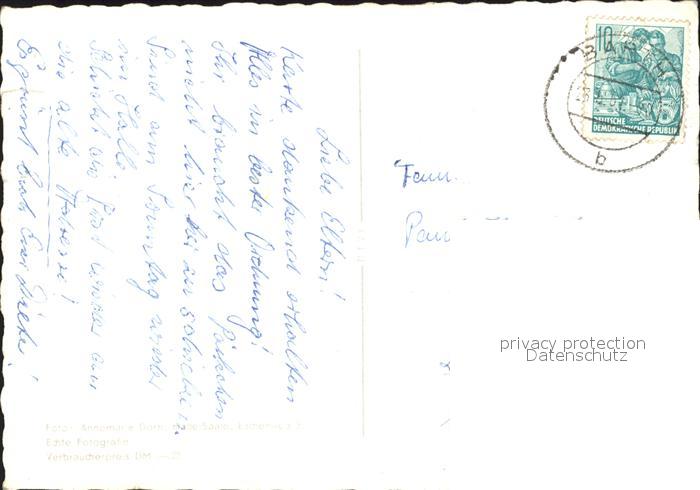 Liebe Eltern!
Karte dankend erhalten
Alles in bester Ordnung!
Ihr braucht das Päckchen
nicht hier her zu schicken.
Sind am Sonntag wieder
in Halle.
Schickt die Post wieder an
die alte Adresse!
Es grüßt Euch Eure
Fam.
Pau
10
DEUTSCHE
DEMOKRATISCHE REPUBLIK
BARTH
b
privacy protection
Datenschutz
Foto: Annemarie Dorn, Halle-Saale,
Echte Fotografie
Verbraucherpreis DM